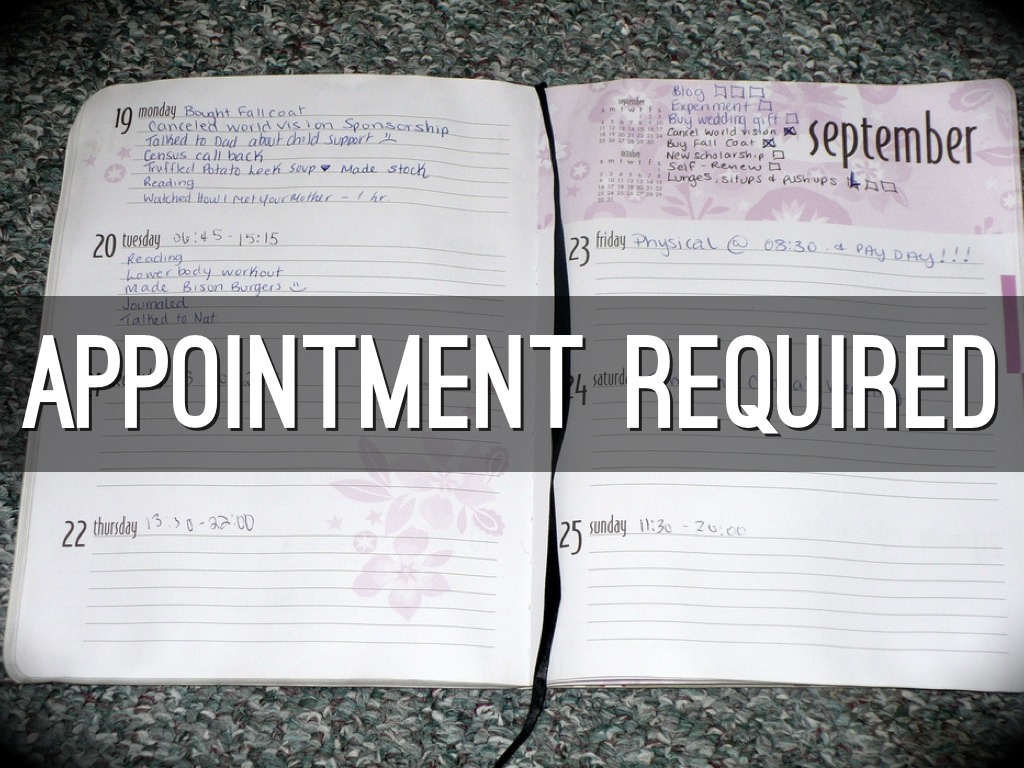 19 monday Bought Fall coat
Canceled world vision Sponsorship
Talked to Dad about child support
Census call back
Truffled Potato Leek Soup Made stock
Reading
Watched How I Met Your Mother - 1 hr
20 tuesday 06:45 - 15:15
Reading
Lower body workout
Made Bison Burgers
Journaled
Talked to Nat
22 thursday 13:30 - 22:00
Blog
Experiment
Buy wedding gift
Cancel world vision
Buy Fall Coat
New scholarship
Self - Review
Lunges, situps & pushups
september
september
october
23 friday Physical @ 08:30 & PAY DAY!!!
24 saturday
25 sunday 11:30 - 20:00
APPOINTMENT REQUIRED